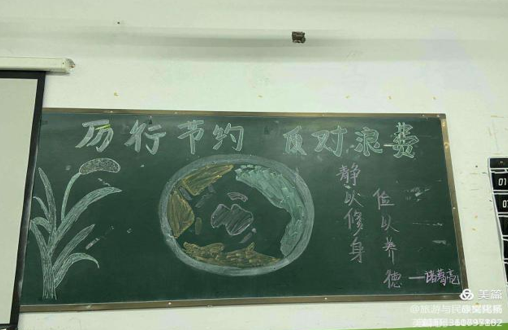 厉行节约 反对浪费
静以修身
俭以养德
——诸葛亮
美篇
@旅游与民族文化系